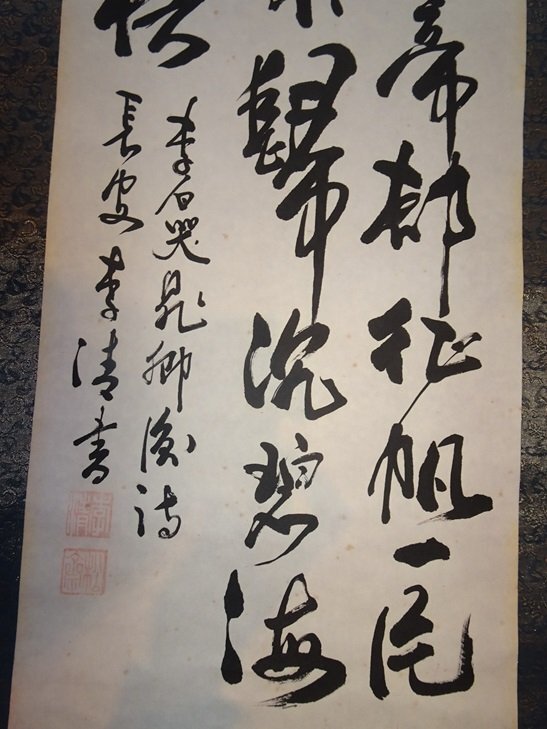 帝都征帆一片
歸沉碧海
李白哭晁卿衡詩
長安李清書